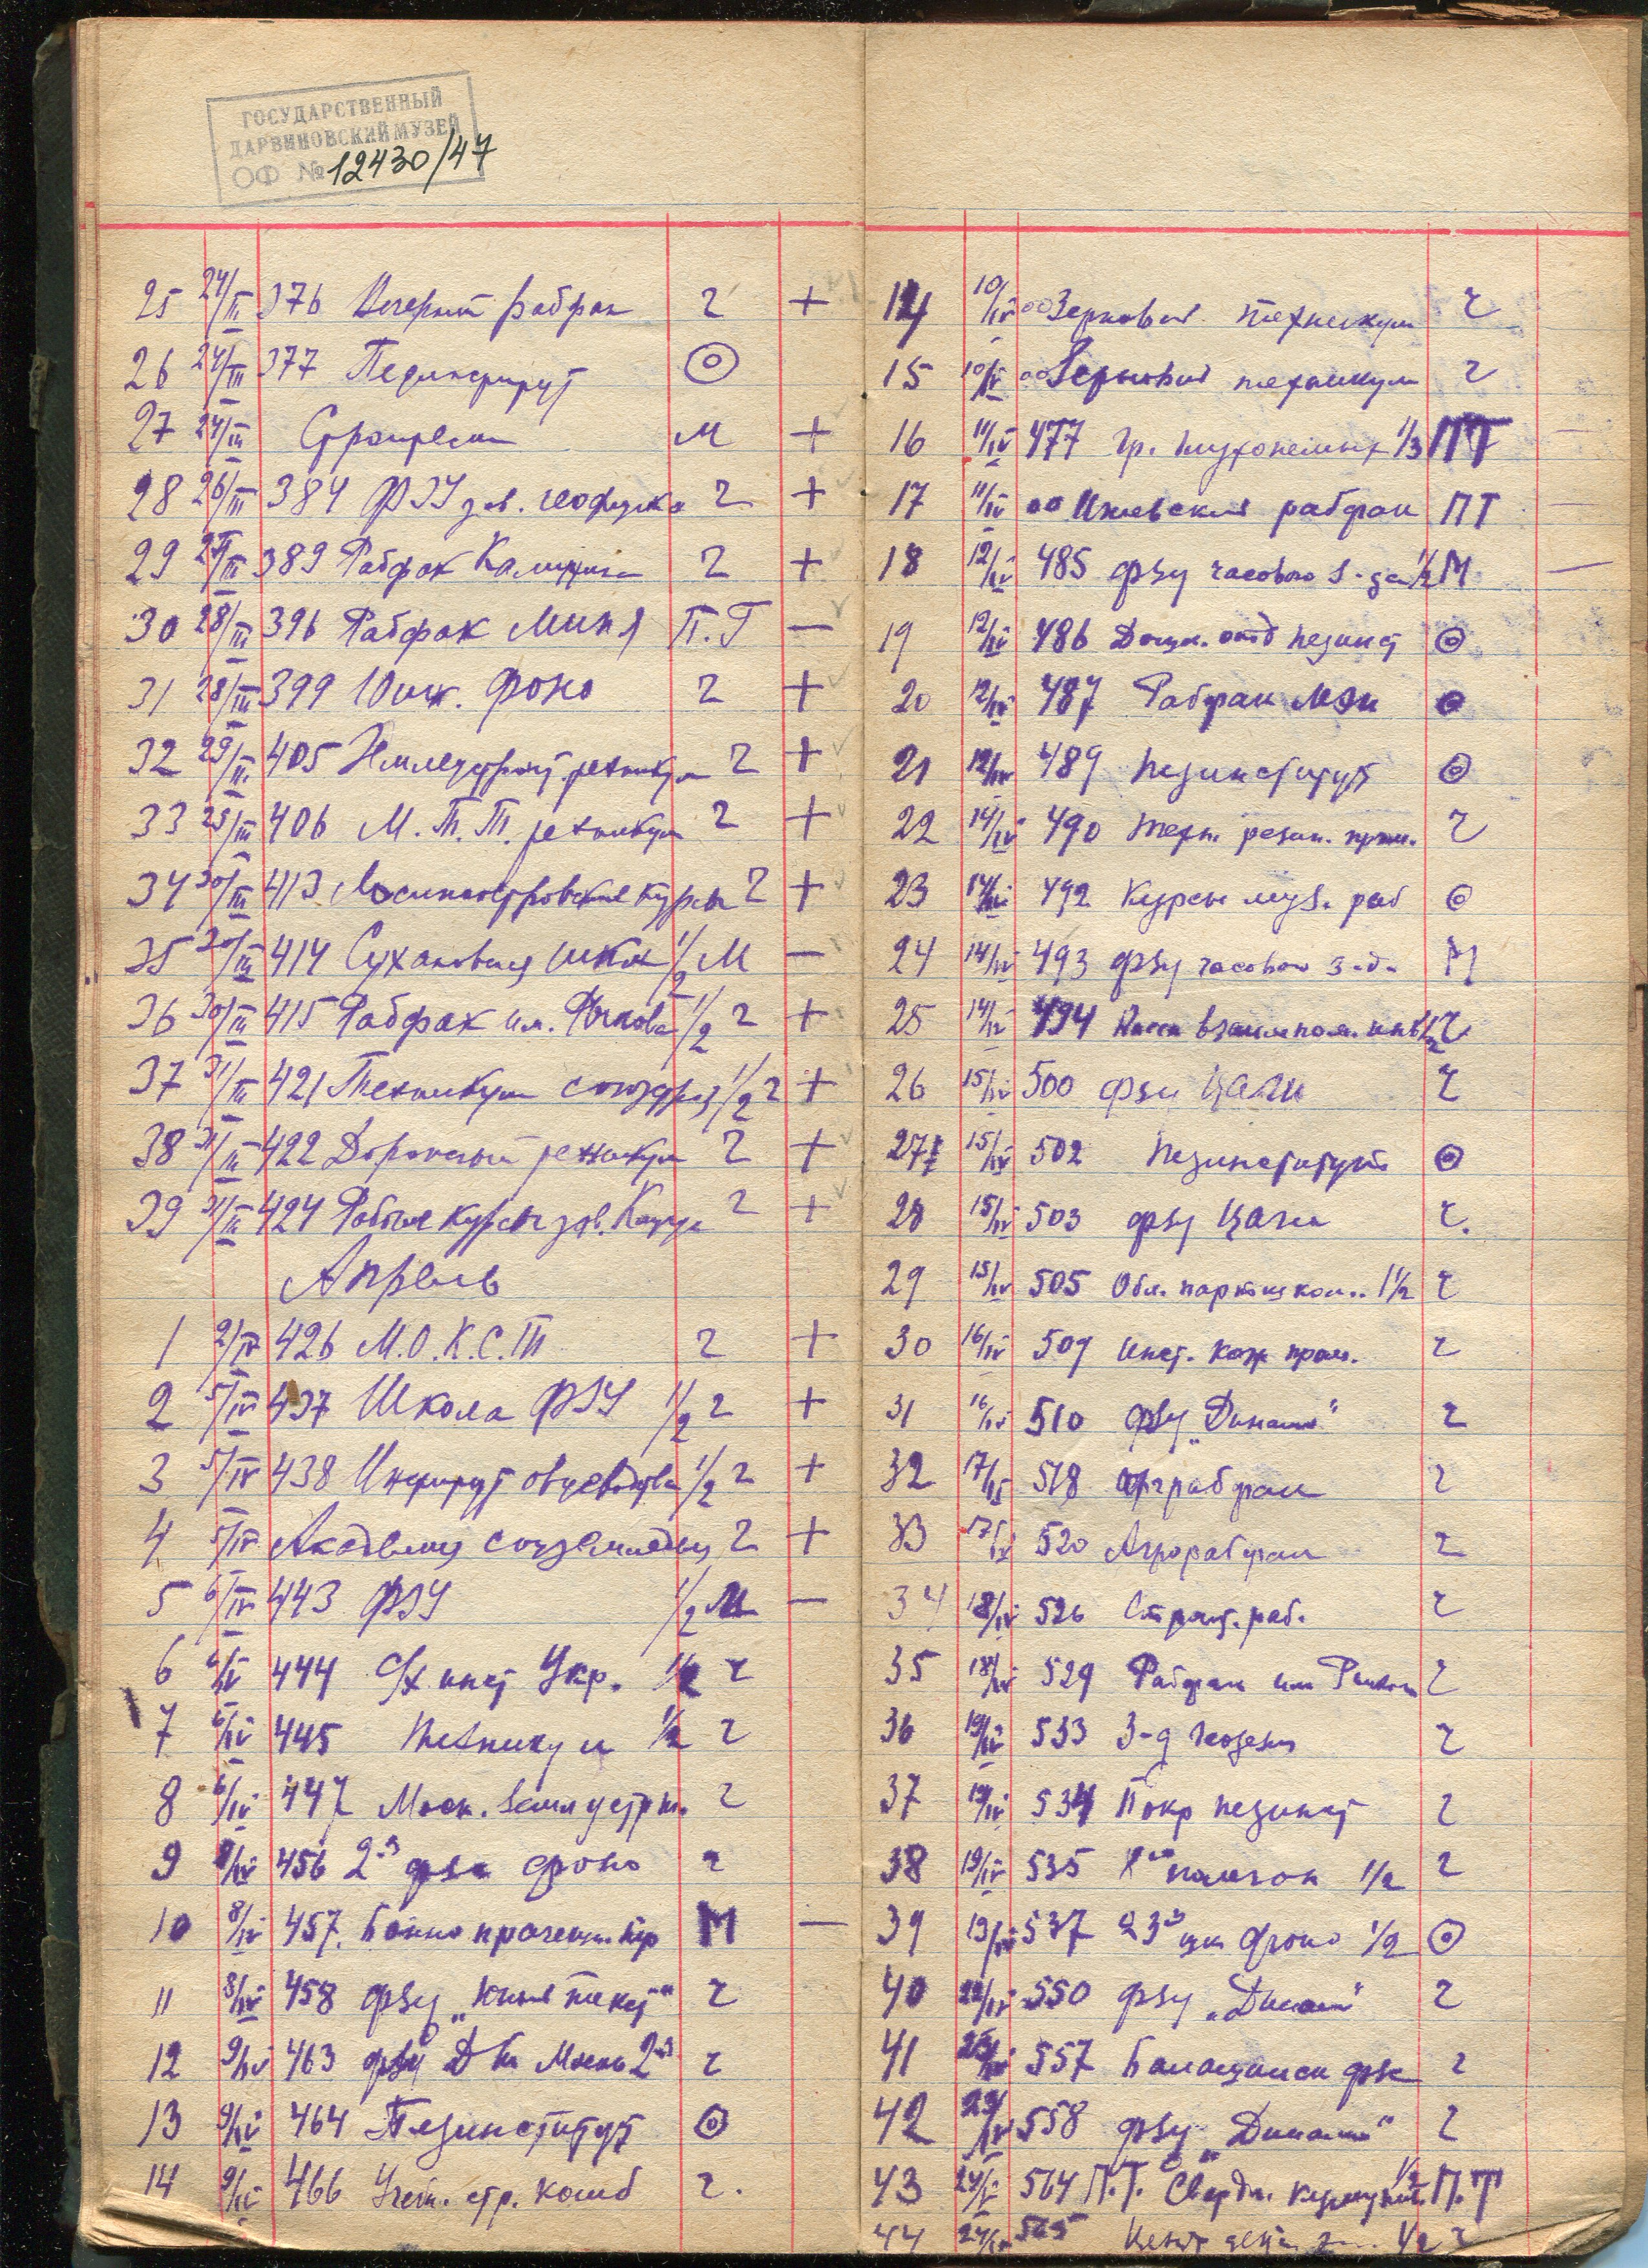 ГОСУДАРСТВЕННЫЙ
ДАРВИНОВСКИЙ МУЗЕЙ
ОФ № 12430/47
25 24/III 376 Вечерний рабфак г +
26 24/III 377 Пединститут ⊙
27 24/III Строители М +
28 26/III 384 ФЗУ зав. геофизика г +
29 27/III 389 Рабфак Калинина г +
30 28/III 396 Рабфак П.Т —
31 28/III 399 Юнк. ФОНО г +
32 29/III 405 техникум г +
33 29/III 406 М.Т.Т. техникум г +
34 30/III 413 Лосиноостровские курсы г +
35 30/III 414 Сухановская школа 1/2 М —
36 30/III 415 Рабфак им. Рыкова 1/2 г +
37 31/III 421 Техникум 1/2 г +
38 31/III 422 Дорожный техникум г +
39 31/III 424 курсы зав. г +
Апрель
1 2/IV 426 М.О.К.С.Т г +
2 5/IV 437 Школа ФЗУ 1/2 г +
3 5/IV 438 Институт овцеводства 1/2 г +
4 5/IV Академия соцземледелия г +
5 6/IV 443 ФЗУ 1/2 М —
6 6/IV 444 С/х инст Укр. 1/2 г
7 6/IV 445 Техникум 1/2 г
8 6/IV 447 Моск. землеустр. г
9 8/IV 456 2-й фоно г
10 8/IV 457. Банно прачечн. М —
11 8/IV 458 фзу „ г
12 9/IV 463 фзу 2й г
13 9/IV 464 Пединститут ⊙
14 9/IV 466 Учеб. стр. комб г.
14 10/IV 00 Зерновой техникум г
15 10/IV 00 Зерновой техникум г
16 11/IV 477 Гр. глухонемых 1/3 ПТ —
17 11/IV 00 Ижевский рабфак ПТ —
18 12/IV 485 фзу часового з-да 1/2 М —
19 12/IV 486 Дошк. отд пединст ⊙
20 12/IV 487 Рабфак МЭИ ⊙
21 12/IV 489 Пединститут ⊙
22 14/IV 490 Техн. резин. пром. г
23 14/IV 492 Курсы муз. раб ⊙
24 14/IV 493 фзу часовой з-д М
25 14/IV 494 Касса взаимопом. 1/2 г
26 15/IV 500 фзу ЦАГИ г
27 15/IV 502 Пединститут ⊙
28 15/IV 503 фзу ЦАГИ г.
29 15/IV 505 Обл. партшкол. 1 1/2 г
30 16/IV 509 Инст. кож пром. г
31 16/IV 510 фзу „Динамо“ г
32 17/IV 518 Агрорабфак г
33 17/IV 520 Агрорабфак г
34 18/IV 526 Строит. раб. г
35 18/IV 529 Рабфак им Рыкова г
36 19/IV 533 З-д Геодезия г
37 19/IV 534 Покр пединст г
38 19/IV 535 1/2 г
39 19/IV 537 23й фоно 1/2 ⊙
40 22/IV 550 фзу „Динамо“ г
41 23/IV 557 г
42 23/IV 558 фзу „Динамо“ г
43 24/IV 564 П.Т. Свердл. 1/2 П.Т
44 24/IV 565 1/2 г